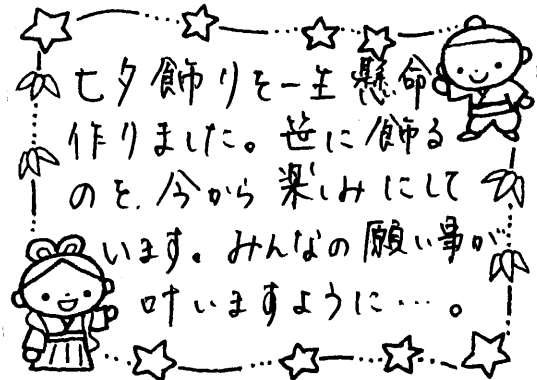 七夕飾りを一生懸命
作りました。笹に飾る
のを、今から楽しみにして
います。みんなの願い事が
叶いますように…。